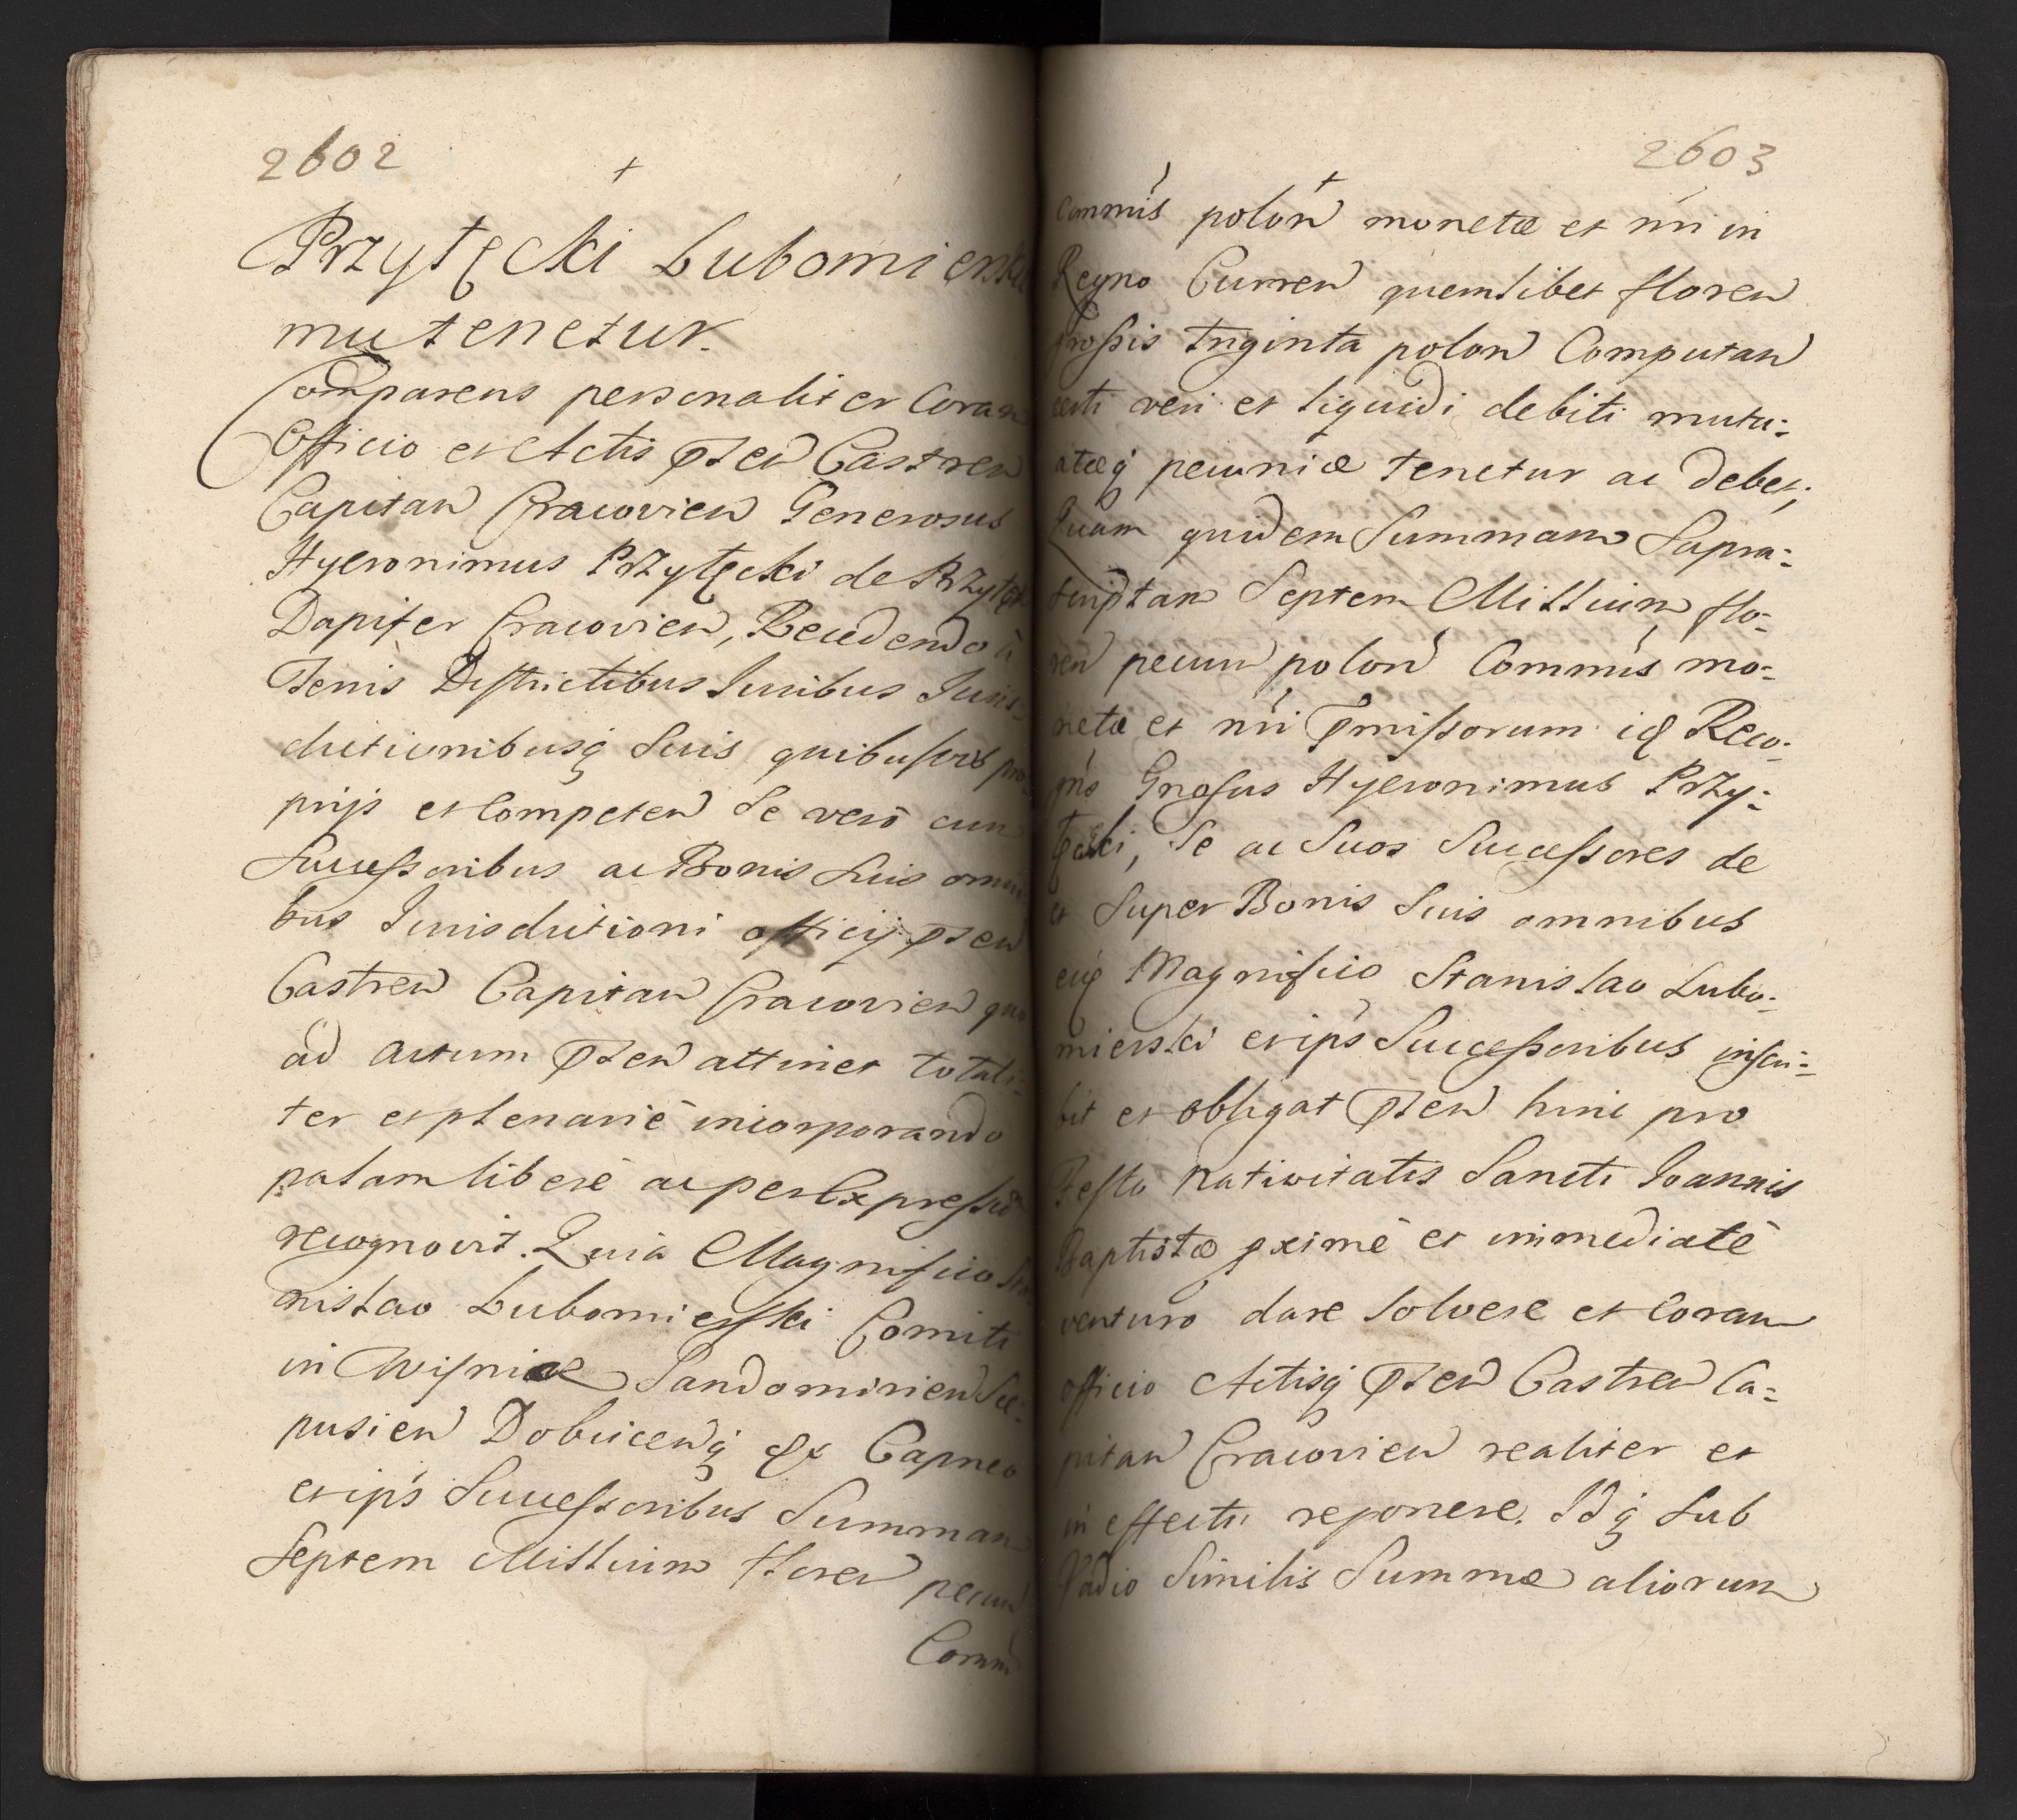 2602
+
Przytęcki Lubomierski
mu tenetur.
Comparens personaliter Coram
Officio et Actis pñten Castren
Capitan Cracovien Generosus
Hyeronimus Przytęcki de Przytęk
Dapifer Cracovien, Recedendo à
Terris Districtibus Iuribus Iuris-
dictionibusq suis quibusvis pro-
prijs et Competen se verò cum
Successoribus ac Bonis suis omni
bus Iurisdictioni officij pñten
Castren Capitan Cracovien quo
ad Actum pñten attinet totali-
ter et plenariè incorporando
palam liberè ac per Expressum
recognovit. Quia Magnifico Sta-
nislao Lubomierski Comiti
in Wisnice Sandomirien Sce-
pusien Dobricenq &c Capneo
et ips Successoribus Summam
septem Millium floren pecun
Commi
2603
+
Commis polon monetæ et nri in
Regno Curren quemlibet floren
grossis triginta polon Computan
certi veri et liquidi debiti mutu-
atæq pecuniæ tenetur ac debet,
Quam quidem Summam supra-
scriptam Septem Millium flo-
ren pecun polon Commis mo-
netæ et nri pmissorum id Reco-
gns Gnosus Hyeronimus Przy-
tęcki, se ac suos Successores de
et super Bonis suis omnibus
eid Magnifico Stanislao Lubo-
mierski et ips Successoribus inscri-
bit et obligat pñten hinc pro
Festo Nativitatis Sancti Ioannis
Baptistæ pximè et immediatè
venturo dare solvere et Coram
officio Actisq pñten Castren Ca-
pitan Cracovien realiter et
in effectu reponere. Idq sub
Vadio similis Summæ aliorum